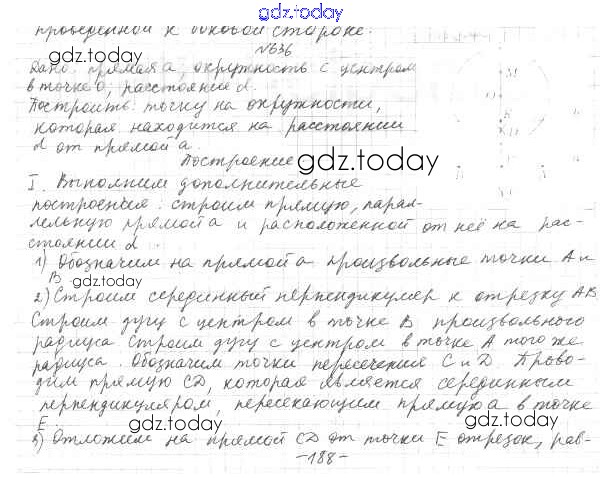 gdz.today
проведенной к боковой стороне.
№636
gdz.today
Дано: прямая а, окружность с центром
в точке О, расстояние d.
Построить: точку на окружности,
которая находится на расстоянии
d от прямой а.
Построение
gdz.today
I. Выполним дополнительные
построения: строим прямую, парал-
лельную прямой а и расположенной от неё на рас-
стоянии d.
1) Обозначим на прямой а произвольные точки А и
В
gdz.today
2) Строим серединный перпендикуляр к отрезку АВ
Строим дугу с центром в точке В произвольного
радиуса. Строим дугу с центром в точке А того же
радиуса. Обозначим точки пересечения С и D. Прово-
дим прямую CD, которая является серединным
перпендикуляром, пересекающим прямую а в точке
Е
gdz.today
gdz.today
3) Отложим на прямой CD от точки Е отрезок, рав-
-188-